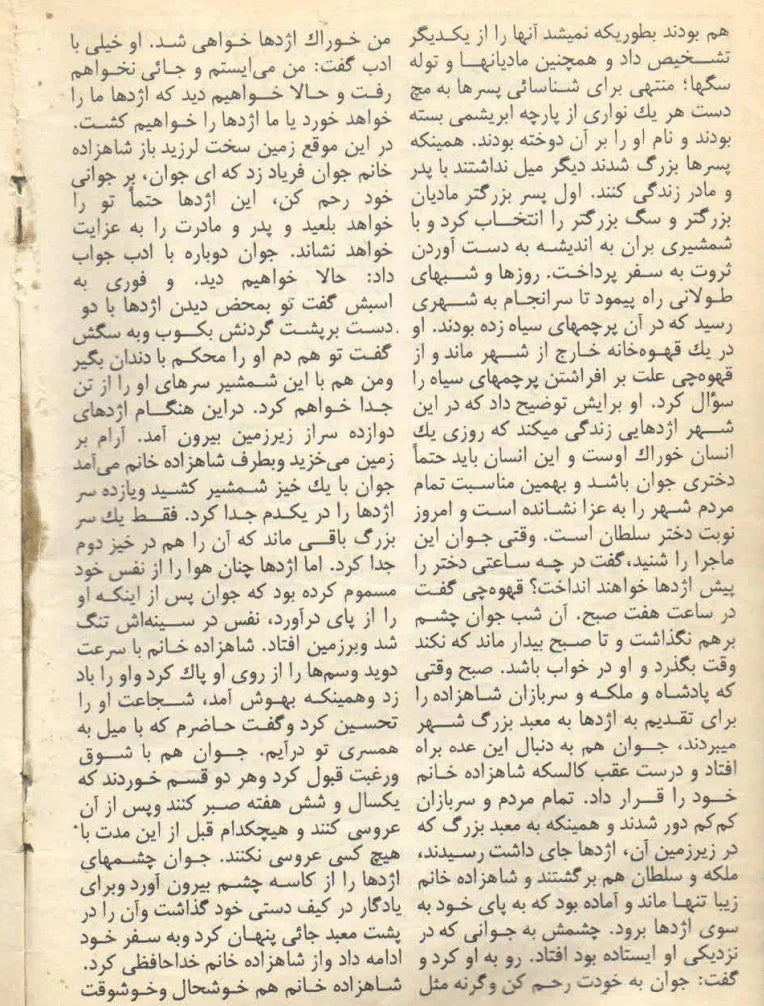 هم بودند بطوریکه نمیشد آنها را از یکدیگر
تشخیص داد و همچنین مادیانها و توله
سگها؛ منتهی برای شناسائی پسرها به مچ
دست هر یك نواری از پارچه ابریشمی بسته
بودند و نام او را بر آن دوخته بودند. همینکه
پسرها بزرگ شدند دیگر میل نداشتند با پدر
و مادر زندگی کنند. اول پسر بزرگتر مادیان
بزرگتر و سگ بزرگتر را انتخاب کرد و با
شمشیری بران به اندیشه به دست آوردن
ثروت به سفر پرداخت. روزها و شبهای
طولانی راه پیمود تا سرانجام به شهری
رسید که در آن پرچمهای سیاه زده بودند. او
در یك قهوه‌خانه خارج از شهر ماند و از
قهوه‌چی علت بر افراشتن پرچمهای سیاه را
سؤال کرد. او برایش توضیح داد که در این
شهر اژدهایی زندگی میکند که روزی یك
انسان خوراك اوست و این انسان باید حتماً
دختری جوان باشد و بهمین مناسبت تمام
مردم شهر را به عزا نشانده است و امروز
نوبت دختر سلطان است. وقتی جوان این
ماجرا را شنید، گفت در چه ساعتی دختر را
پیش اژدها خواهند انداخت؟ قهوه‌چی گفت
در ساعت هفت صبح. آن شب جوان چشم
برهم نگذاشت و تا صبح بیدار ماند که نکند
وقت بگذرد و او در خواب باشد. صبح وقتی
که پادشاه و ملکه و سربازان شاهزاده را
برای تقدیم به اژدها به معبد بزرگ شهر
میبردند، جوان هم به دنبال این عده براه
افتاد و درست عقب کالسکه شاهزاده خانم
خود را قرار داد. تمام مردم و سربازان
کم‌کم دور شدند و همینکه به معبد بزرگ که
در زیرزمین آن، اژدها جای داشت رسیدند،
ملکه و سلطان هم برگشتند و شاهزاده خانم
زیبا تنها ماند و آماده بود که به پای خود به
سوی اژدها برود. چشمش به جوانی که در
نزدیکی او ایستاده بود افتاد. رو به او کرد و
گفت: جوان به خودت رحم کن وگرنه مثل
من خوراك اژدها خواهی شد. او خیلی با
ادب گفت: من می‌ایستم و جائی نخواهم
رفت و حالا خواهیم دید که اژدها ما را
خواهد خورد یا ما اژدها را خواهیم کشت.
در این موقع زمین سخت لرزید باز شاهزاده
خانم جوان فریاد زد که ای جوان، بر جوانی
خود رحم کن، این اژدها حتماً تو را
خواهد بلعید و پدر و مادرت را به عزایت
خواهد نشاند. جوان دوباره با ادب جواب
داد: حالا خواهیم دید. و فوری به
اسبش گفت تو بمحض دیدن اژدها با دو
دست برپشت گردنش بکوب وبه سگش
گفت تو هم دم او را محکم با دندان بگیر
ومن هم با این شمشیر سرهای او را از تن
جدا خواهم کرد. دراین هنگام اژدهای
دوازده سراز زیرزمین بیرون آمد. آرام بر
زمین می‌خزید وبطرف شاهزاده خانم می‌آمد
جوان با یك خیز شمشیر کشید ویازده سر
اژدها را در یکدم جدا کرد. فقط یك سر
بزرگ باقی ماند که آن را هم در خیز دوم
جدا کرد. اما اژدها چنان هوا را از نفس خود
مسموم کرده بود که جوان پس از اینکه او
را از پای درآورد، نفس در سینه‌اش تنگ
شد وبرزمین افتاد. شاهزاده خانم با سرعت
دوید وسم‌ها را از روی او پاك کرد واو را باد
زد وهمینکه بهوش آمد، شجاعت او را
تحسین کرد وگفت حاضرم که با میل به
همسری تو درآیم. جوان هم با شوق
ورغبت قبول کرد وهر دو قسم خوردند که
یکسال و شش هفته صبر کنند وپس از آن
عروسی کنند و هیچکدام قبل از این مدت با
هیچ کسی عروسی نکنند. جوان چشمهای
اژدها را از کاسه چشم بیرون آورد وبرای
یادگار در کیف دستی خود گذاشت وآن را در
پشت معبد جائی پنهان کرد وبه سفر خود
ادامه داد واز شاهزاده خانم خداحافظی کرد.
شاهزاده خانم هم خوشحال وخوشوقت